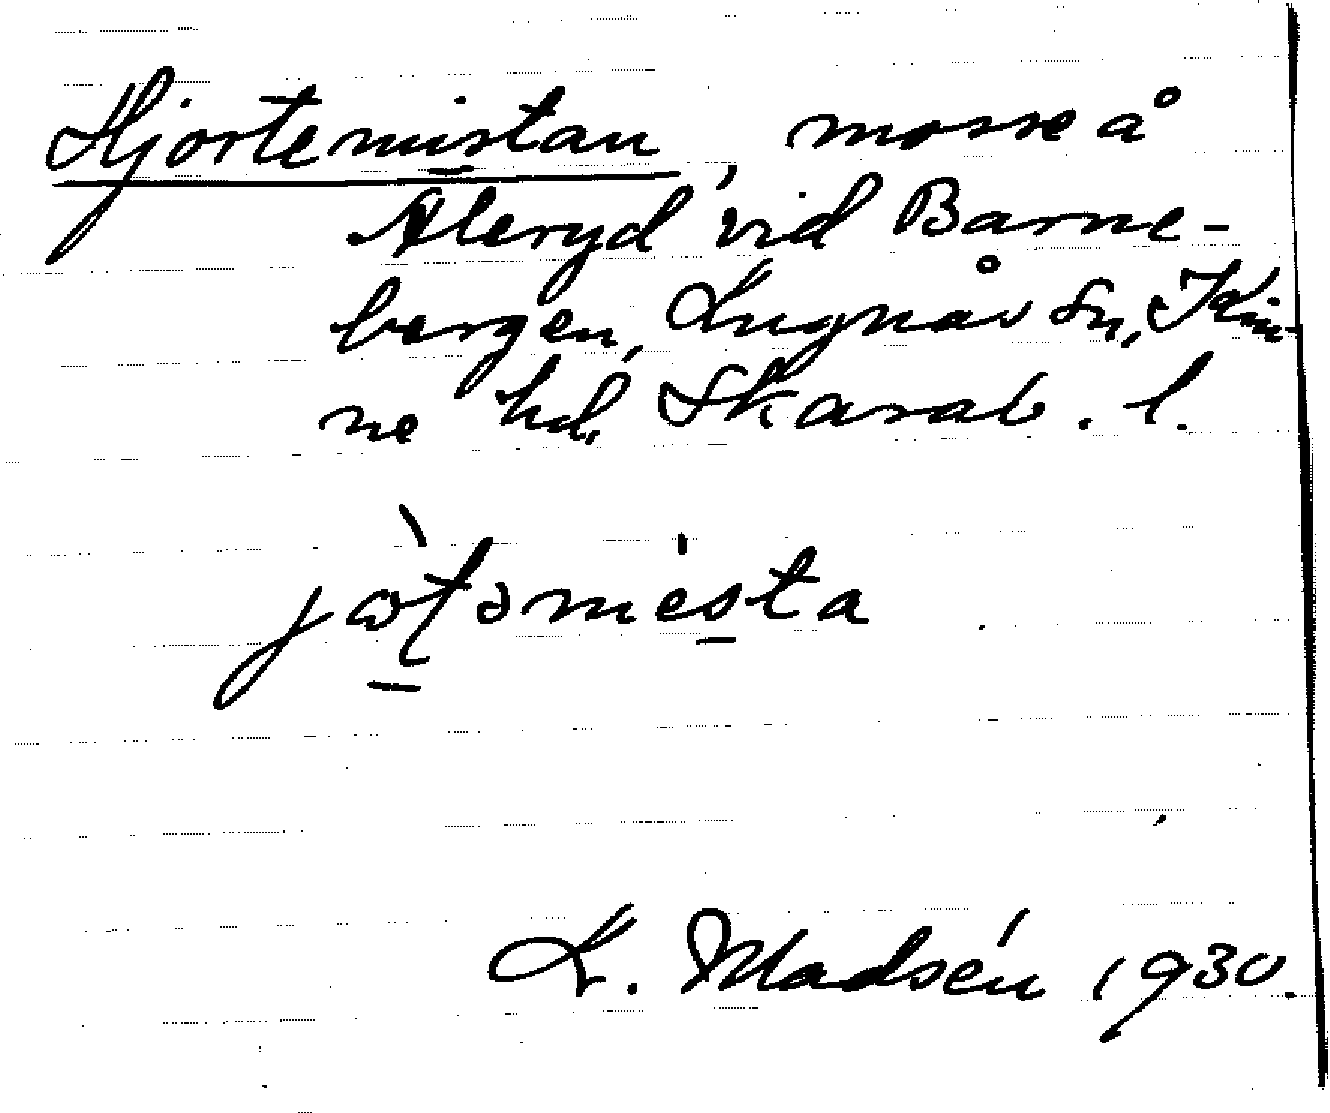 Hjortemistan, mosse å
Aleryd vid Barne-
bergen, Lugnås sn, Kin-
ne hd. Skarab. l.
L. Madsén 1930.